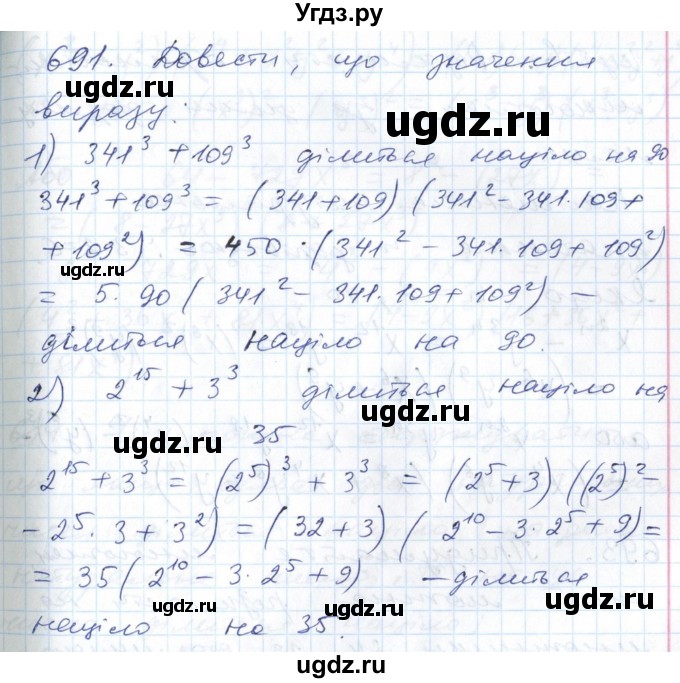 Угдз.ру
691. Довести, що значення
виразу:
1) 341³ + 109³ ділиться націло на 90
341³ + 109³ = (341 + 109) (341² - 341·109 +
+ 109²) = 450 · (341² - 341·109 + 109²)
= 5·90 (341² - 341·109 + 109²) —
ділиться націло на 90.
2) 2¹⁵ + 3³ ділиться націло на
35
2¹⁵ + 3³ = (2⁵)³ + 3³ = (2⁵ + 3) ((2⁵)² -
- 2⁵·3 + 3²) = (32 + 3) (2¹⁰ - 3·2⁵ + 9) =
= 35 (2¹⁰ - 3·2⁵ + 9) - ділиться
націло на 35.
ugdz.ru
ugdz.ru
ugdz.ru
ugdz.ru
ugdz.ru
ugdz.ru
ugdz.ru
ugdz.ru
ugdz.ru